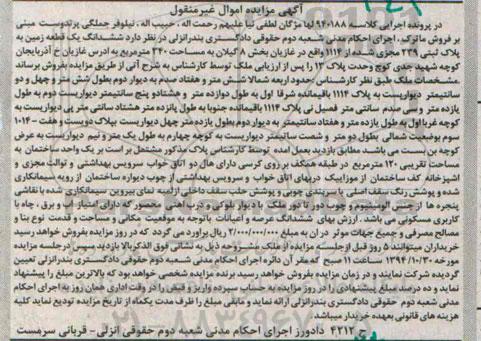 آگهی مزایده اموال غیرمنقول
در پرونده اجرایی کلاسه ۹۴۰۱۸۸ ماترک مرحوم لطفی نیا علیهم رحمت اله ، حبیب اله ، نیلوفر جملگی پرتدوست مبنی
بر فروش ماترک، اجرای احکام مدنی شعبه دوم حقوقی دادگستری بندرانزلی در نظر دارد ششدانگ یک قطعه زمین به
پلاک ثبتی ۲۳۹ مجزی شده از ۱۱۱۴ واقع در غازیان بخش ۸ گیلان به مساحت ۳۴۰ مترمربع به آدرس غازیان خ آذربایجان
کوچه شهید جدی کوچ وحدت پلاک ۱۳ را پس از ارزیابی ملک توسط کارشناس به شرح آتی از طریق مزایده بفروش برساند
.مشخصات ملک طبق نظر کارشناس حدود اربعه شمالا شش متر و هفتاد صدم به دیوار دوم بطول شش متر و چهل و دو
سانتیمتر دیواریست به پلاک ۱۱۱۴ باقیمانده شرقا اول به طول دوازده متر و هشتاد و پنج سانتیمتر دیواریست دوم به طول
یازده متر و سی صدم سانتی متر فصیل نی پلاک ۱۱۱۴ باقیمانده جنوبا به طول پانزده متر هشتاد سانتی متر پی دیواریست به
کوچه غربا اول به طول یازده متر و هفتاد سانتیمتر به دیوار دوم بطول یازده متر چهل دیواریست بپلاک دویست و هفت - ۱۰۱۴
سوم بوضعیت شمالی بطول دو متر و شصت سانتیمتر دیواریست به کوچه چهارم به طول یک متر و نیم دیواریست به عرض
کوچه بن بست می باشد. مطابق بازدید بعمل آمده توسط کارشناس پلاک مذکور مشتمل بر است بر یک واحد ساختمان به
مساحت تقریبی ۱۲۰ مترمربع در طبقه همکف بر روی کرسی دارای هال دو اتاق خواب سرویس بهداشتی و توالت مجزی و
آشپزخانه کف ساختمان از موزاییک دربهای اتاق خواب و سرویس بهداشتی از چوب دیواره ساختمان از رویه سیمانکاری
شده و پوشش رنگ سقف اصلی با سربندی چوبی و پوشش حلب سقف داخلی از لمبه نمای بیرون سیمانکاری شده با نقاشی
پنجره ها از جنس آلومینیوم و چوب دور تا دور ملک با دیوار بلوکی و درب آهنی محصور که دارای امتیاز آب و برق ، چاه با
کاربری مسکونی می باشد . ارزش بهای ششدانگ عرصه و اعیانات با توجه به موقعیت مکانی مساحت و قدمت نوع بنا و
مصالح مصرفی و جمیع جهات موثر در آن به مبلغ ۲/۰۰۰/۰۰۰/۰۰۰ ریال برآورد می گردد که در روز مزایده بفروش خواهد رسید
خریداران میتوانند ۵ روز قبل از جلسه مزایده از ملک مشروحه ذیل به نشانی فوق الذکر بالا بازدید سپس در جلسه مزایده
مورخه ۱۳۹۴/۱۰/۳۰ ساعت ۱۱ صبح که مقر آن دائره اجرای احکام مدنی شعبه دوم حقوقی دادگستری بندرانزلی تعیین
گردیده شرکت نمایند و در زمان مزایده بفروش خواهد رسید برنده مزایده شخصی خواهد بود که بالاترین مبلغ را پیشنهاد
نماید و ده درصد مبلغ پیشنهادی را در روز مزایده به حساب سپرده واریز و فیش را در وقت اداری همان روز به اجرای احکام
مدنی شعبه دوم حقوقی دادگستری بندرانزلی ارائه نماید و مابقی مبلغ را ظرف مدت یکماه از تاریخ مزایده تودیع نماید کلیه
هزینه های قانونی بعهده خریدار میباشد.
ح ۴۲۱۲ دادورز اجرای احکام مدنی شعبه دوم حقوقی انزلی - قربانی سرمست